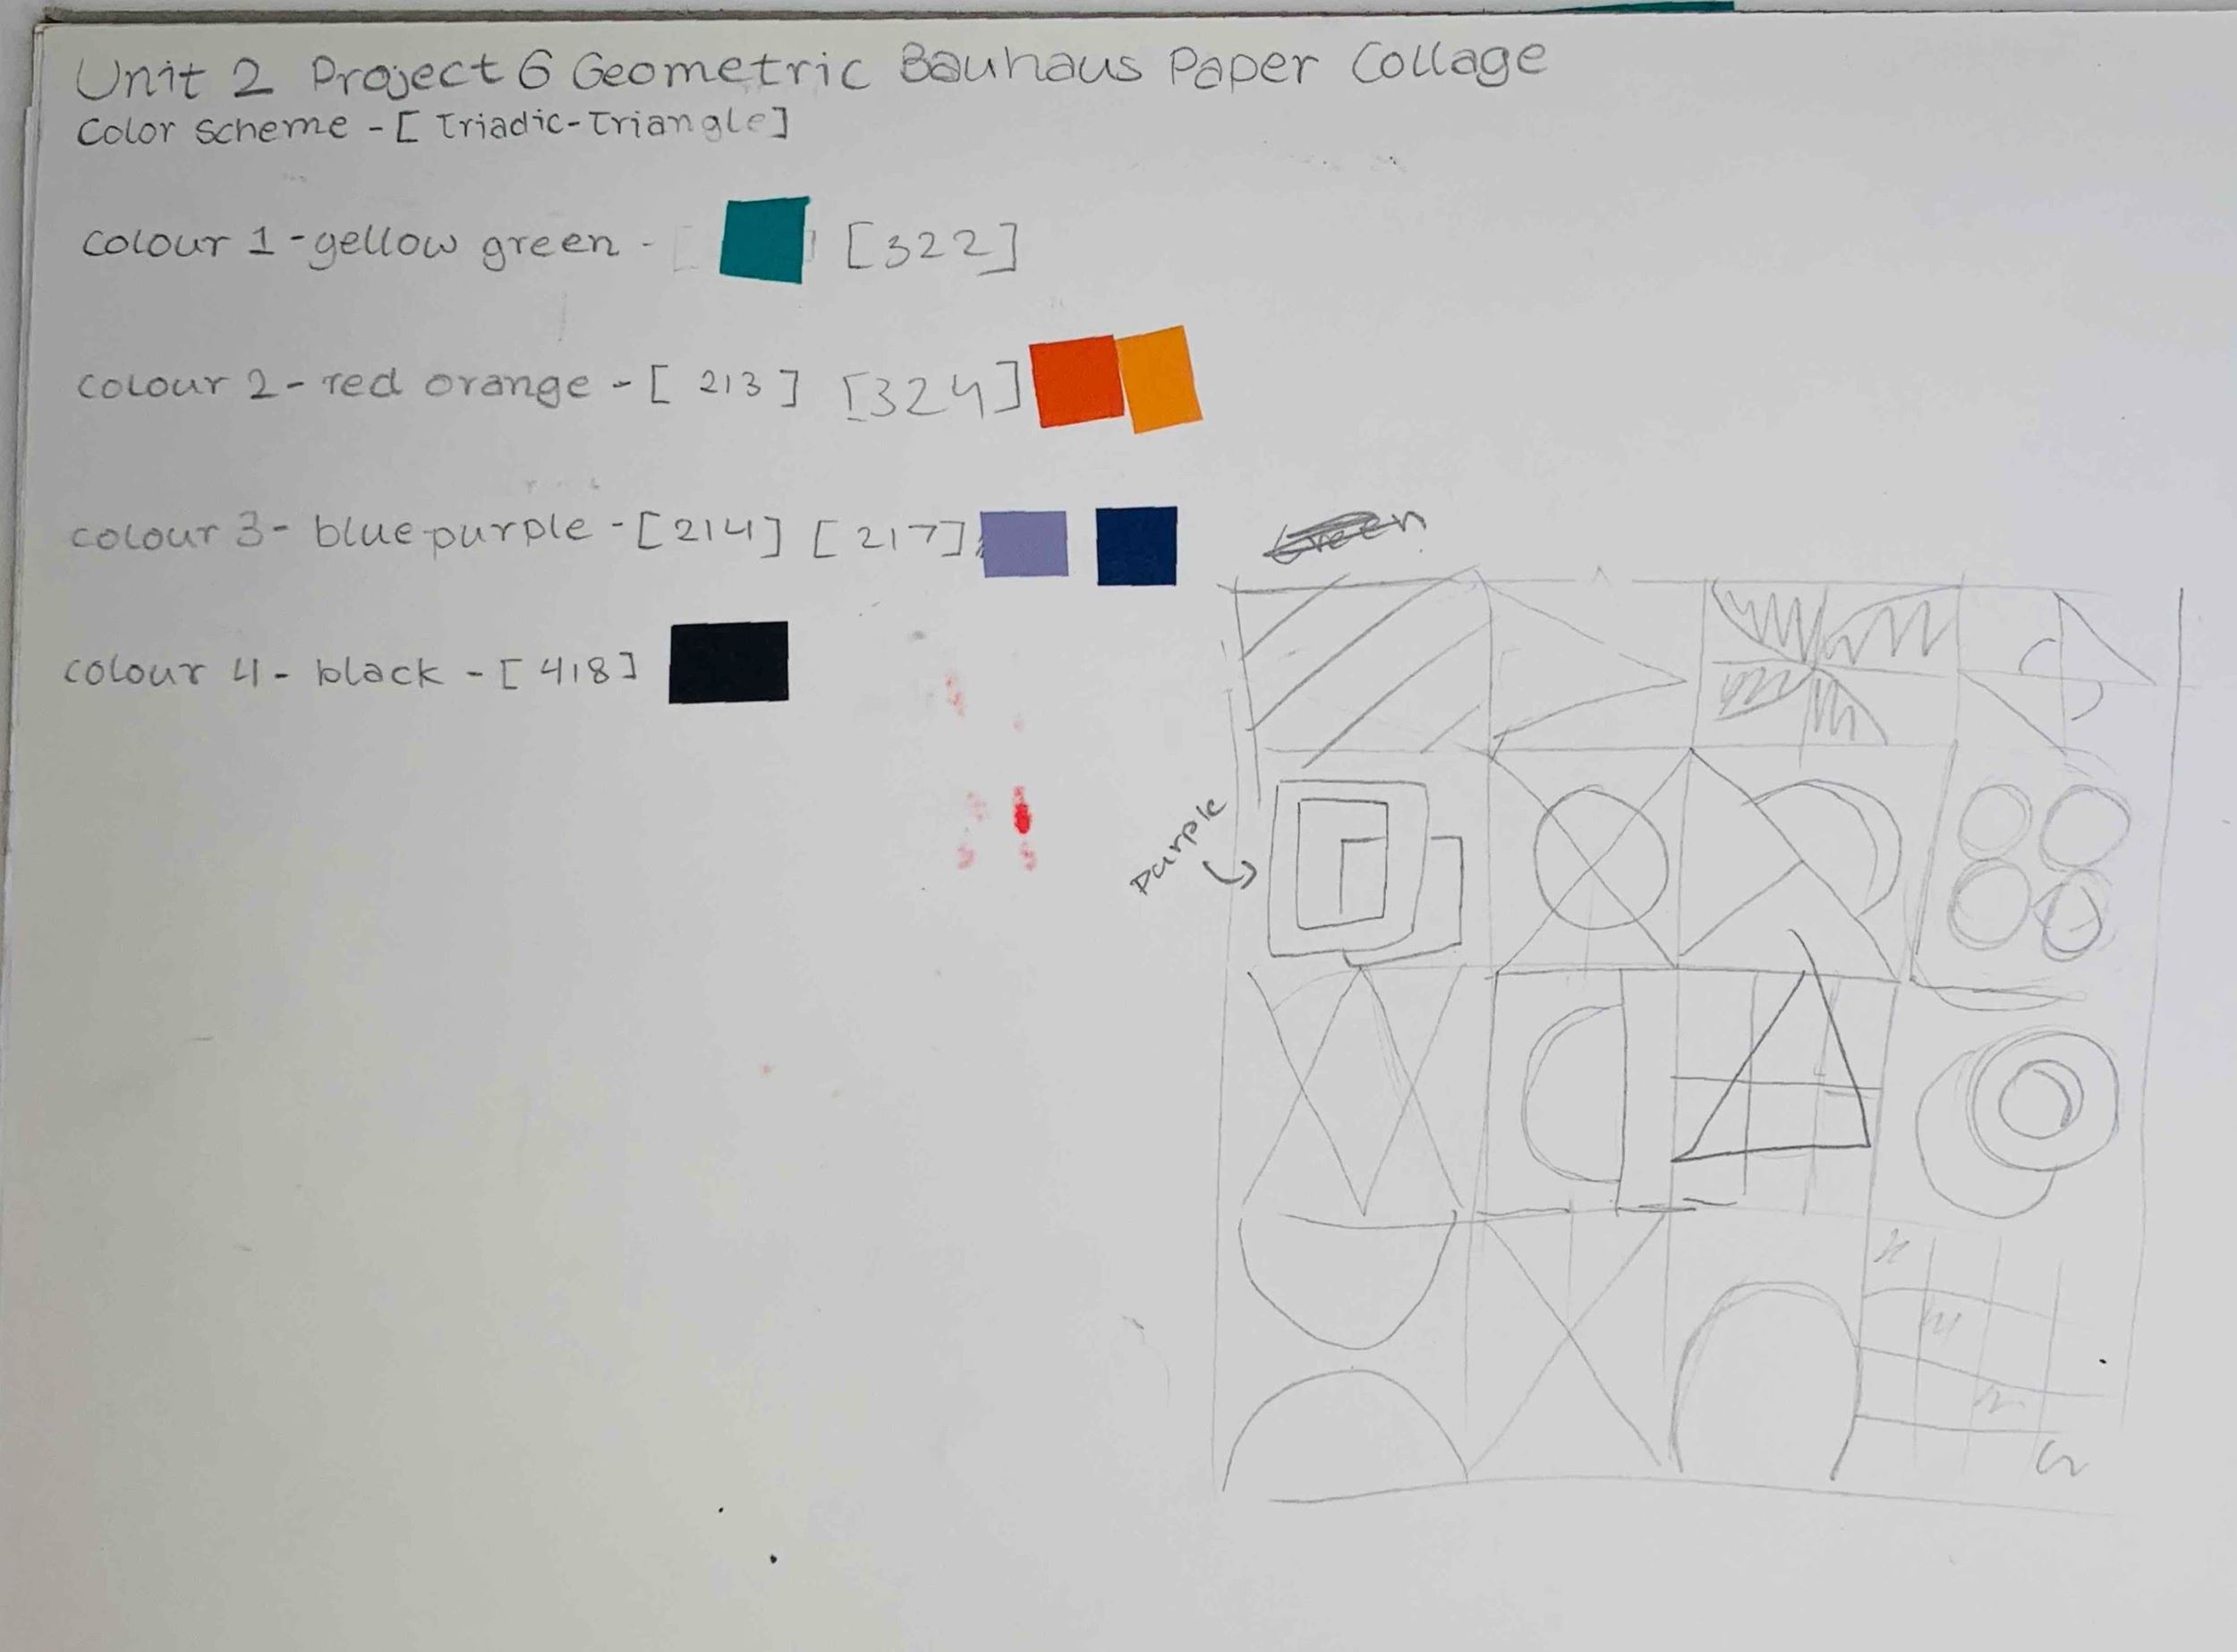 Unit 2 Project 6 Geometric Bauhaus Paper Collage
Color Scheme - [Triadic-Triangle]
Colour 1 - yellow green - [322]
Colour 2 - red orange - [213] [324]
Colour 3 - blue purple - [214] [217]
Green
Colour 4 - black - [418]
Purple